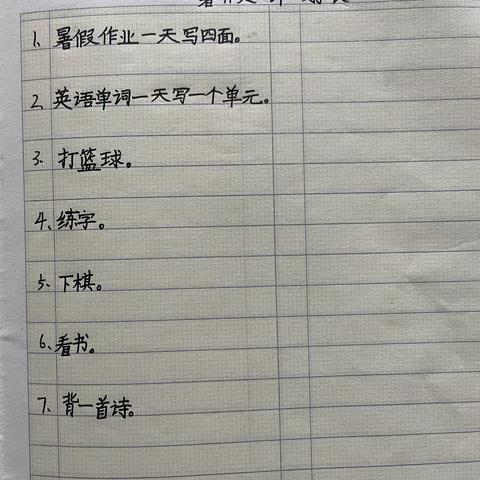 1、暑假作业一天写四面。
2、英语单词一天写一个单元。
3、打篮球。
4、练字。
5、下棋。
6、看书。
7、背一首诗。